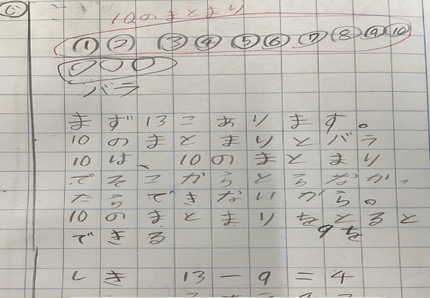 10のまとまり
① ② ③ ④ ⑤ ⑥ ⑦ ⑧ ⑨ ⑩
バラ
まず13こあります。
10のまとまりとバラ
10は、10のまとまり
でそこからとらなか。
たらできないから。
10のまとまりをとると
できる 9を
しき 13-9=4